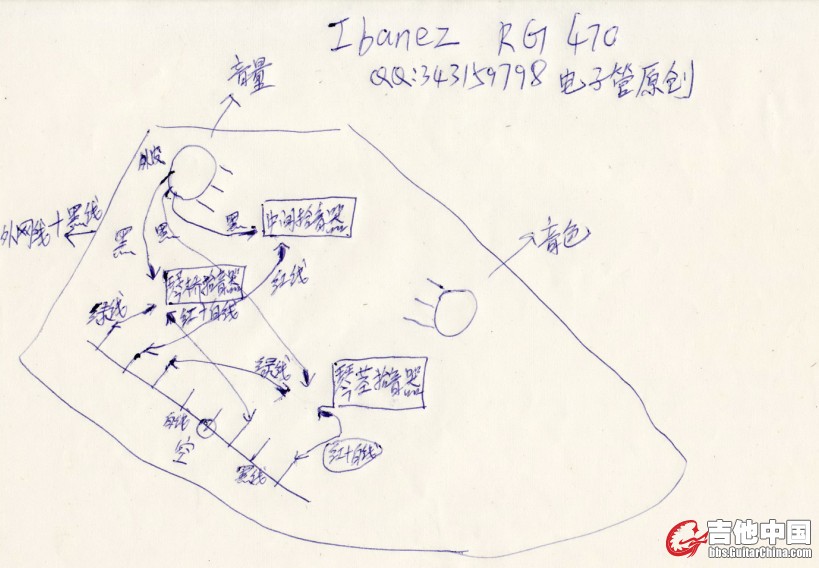 Ibanez RG 470
QQ:343159798 电子管原创
音量
外皮
外网线+黑线
黑
黑
黑
中间拾音器
音色
琴桥拾音器
红线
绿线
红+白线
绿线
琴茎拾音器
白线
空
黑线
红+白线
吉他中国
bbs.GuitarChina.com